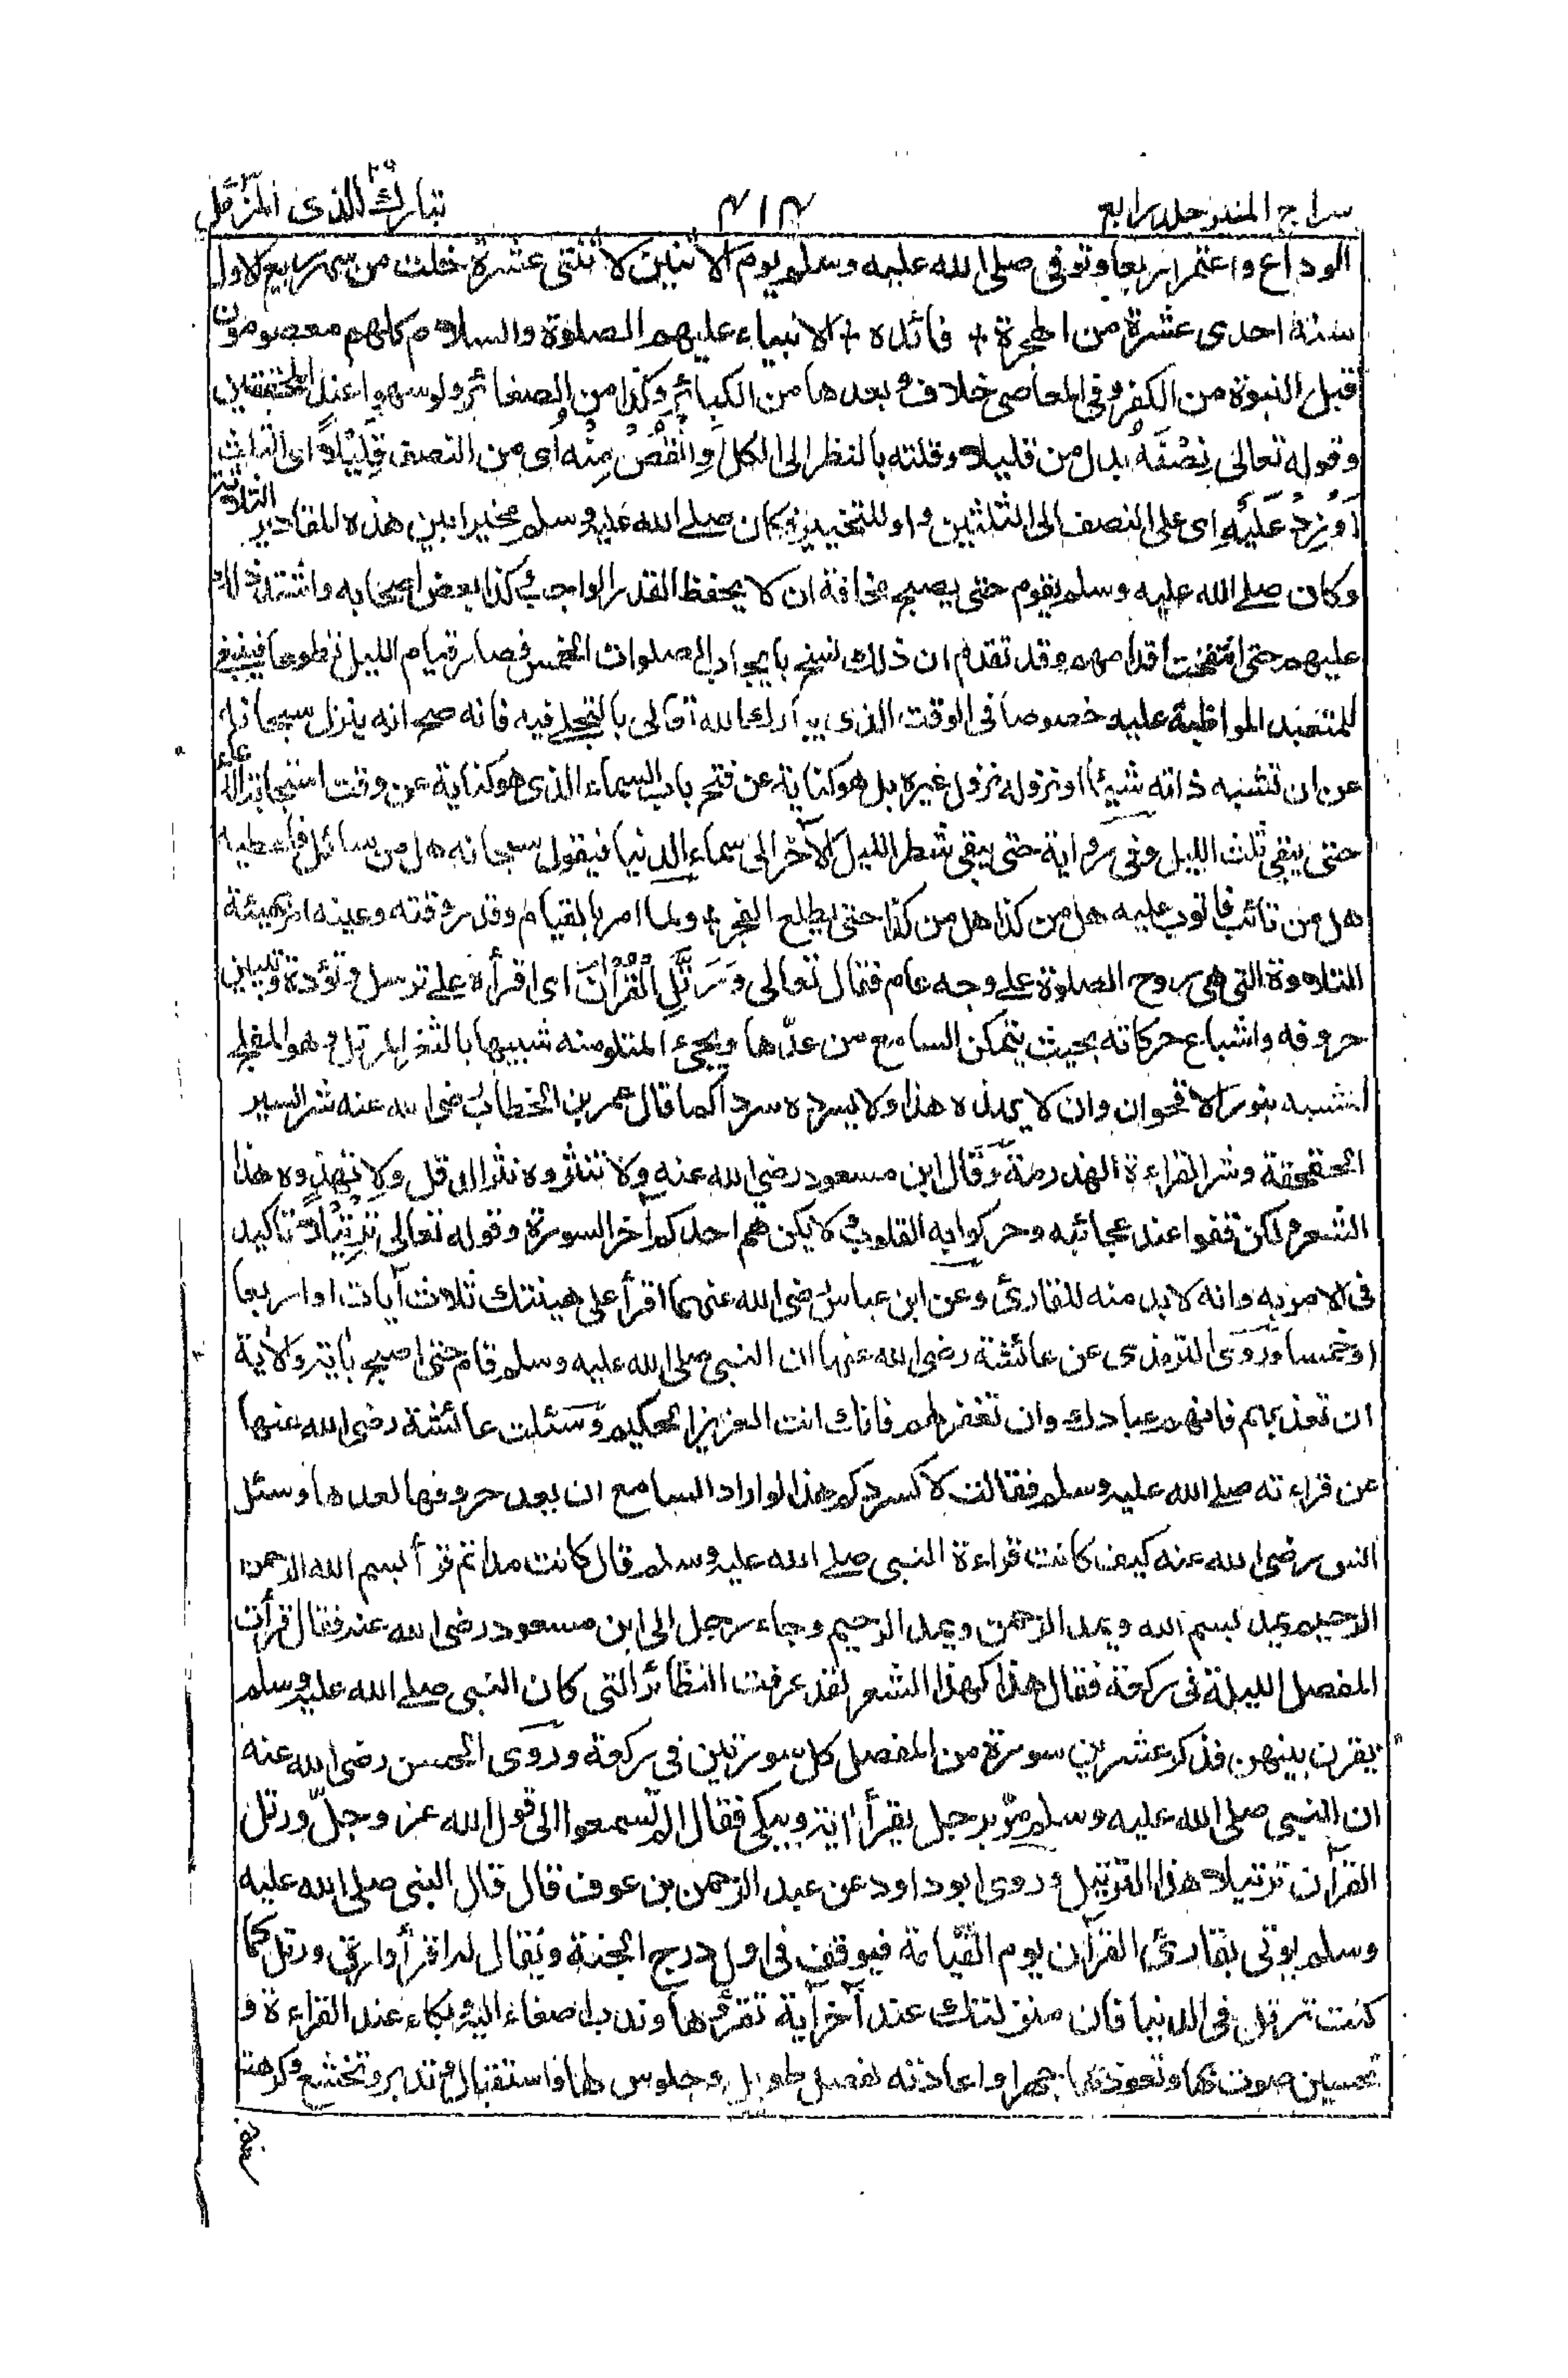 سراج المنير جلد رابع
٤١٤
تبارك الذى ٢٩ المزمل
الوداع واعتمر اربعا وتوفى صلى الله عليه وسلم يوم الاثنين لاثنتى عشرة خلت من شهر ربيع الاول
سنة احدى عشرة من الهجرة + فائدة + الانبياء عليهم الصلوة والسلام كلهم معصومون
قبل النبوة من الكفر وفى المعاصى خلاف وبعدها من الكبائر وكذا من الصغائر ولو سهوا عند المحققين
وقوله تعالى نِصْفَهُ بدل من قليلا وقلته بالنظر الى الكل وَانْقُصْ مِنْهُ اى من النصف قَلِيْلاً اى الثلث
اَوْزِدْ عَلَيْهِ اى على النصف الى الثلثين واو للتخيير فكان صلے الله عليه وسلم مخيرا بين هذه المقادير الثلاثة
وكان صلے الله عليه وسلم يقوم حتى يصبح مخافة ان لا يحفظ القدر الواجب وكذا بعض اصحابه واشتد ذلك
عليهم حتى انتفخت اقدامهم وقد تقدم ان ذلك نسخ بايجاب الصلوات الخمس فصار قيام الليل تطوعا فينبغى
للمتعبد المواظبة عليه خصوصا فى الوقت الذى يبارك الله تعالى بالتجلے فيه فانه صح انه ينزل سبحانه
عن ان تشبه ذاته شيئا او نزوله نزول غيره بل هو كناية عن فتح باب السماء الذى هو كناية عن وقت استجابة الدعاء
حتى يبقى ثلث الليل وفى رواية حتى يبقى شطر الليل الآخر الى سماء الدنيا فيقول سبحانه هل من سائل فاعطيه
هل من تائب فاتوب عليه هل من كذا هل من كذا حتى يطلع الفجر ولما امر بالقيام وقدر وقته وعينه امر بهيئة
التلاوة التى هى روح الصلوة علے وجه عام فقال تعالى وَرَتِّلِ الْقُرْاٰنَ اى اقرأه علے ترسل وتؤدة وتبيين
حروفه واشباع حركاته بحيث يتمكن السامع من عدّها ويجىء المتلو منه شبيها بالثغر المرتل وهو المفلج
المشبه بنور الاقحوان وان لا يهذه هذا ولا يسرده سردا كما قال عمر بن الخطاب رضى الله عنه شر السير
الحقحقة وشر القراءة الهذرمة وقال ابن مسعود رضى الله عنه ولا تنثروه نثر الدقل ولا تهذوه هذا
الشعر ولكن قفوا عند عجائبه وحركوا به القلوب ولا يكن هم احدكم آخر السورة وقوله تعالى تَرْتِيْلاً تاكيد
فى الامر به وانه لابد منه للقارئ وعن ابن عباس رضى الله عنهما اقرأ على هينتك ثلاث آيات او اربعا
او خمسا وروى الترمذى عن عائشة رضى الله عنها ان النبى صلى الله عليه وسلم قام حتى اصبح بآية والآية
ان تعذبهم فانهم عبادك وان تغفر لهم فانك انت العزيز الحكيم وسئلت عائشة رضى الله عنها
عن قراءته صلے الله عليه وسلم فقالت لا كسردكم هذا لو اراد السامع ان يعد حروفها لعدها وسئل
انس رضى الله عنه كيف كانت قراءة النبى صلے الله عليه وسلم قال كانت مدا ثم قرأ بسم الله الرحمن
الرحيم يمد بسم الله ويمد الرحمن ويمد الرحيم وجاء رجل الى ابن مسعود رضى الله عنه فقال قرأت
المفصل الليلة فى ركعة فقال هذا كهذا الشعر لقد عرفت النظائر التى كان النبى صلے الله عليه وسلم
يقرن بينهن فذكر عشرين سورة من المفصل كل سورتين فى ركعة وروى الحسن رضى الله عنه
ان النبى صلى الله عليه وسلم مرّ برجل يقرأ آية ويبكى فقال الم تسمعوا الى قول الله عز وجلّ ورتل
القرآن ترتيلا هذا الترتيل وروى ابو داود عن عبد الرحمن بن عوف قال قال النبى صلى الله عليه
وسلم يوتى بقارئ القرآن يوم القيامة فيوقف فى اول درج الجنة ويقال له اقرأ وارق ورتل كما
كنت ترتل فى الدنيا فان منزلتك عند آخر آية تقرؤها وندب اصغاء اليه وبكاء عند القراءة و
تحسين صوت بها وتعوذ لها جهرا واعادته لفصل طويل وجلوس لها واستقبال وتدبر وتخشع وكرهت